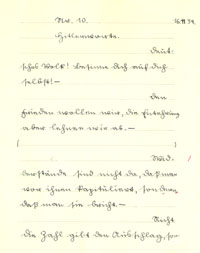 Nr. 10.
16.11.39.
Hitlerworte.
Deut-
sches Volk! Besinne dich auf dich
selbst! –
Den
Frieden wollen wir, die Entehrung
aber lehnen wir ab. –
Wid-
erstände sind nicht da, daß man
vor ihnen kapituliert, sondern
daß man sie bricht. –
Nicht
die Zahl gibt den Ausschlag, so